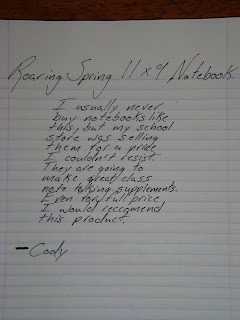 Roaring Spring 11x9 Notebook
I usually never
buy notebooks like
this, but my school
store was selling
them for a pride
I couldn't resist.
They are going to
make great class
note taking supplements.
Even for full price,
I would recommend
this product.
-Cody